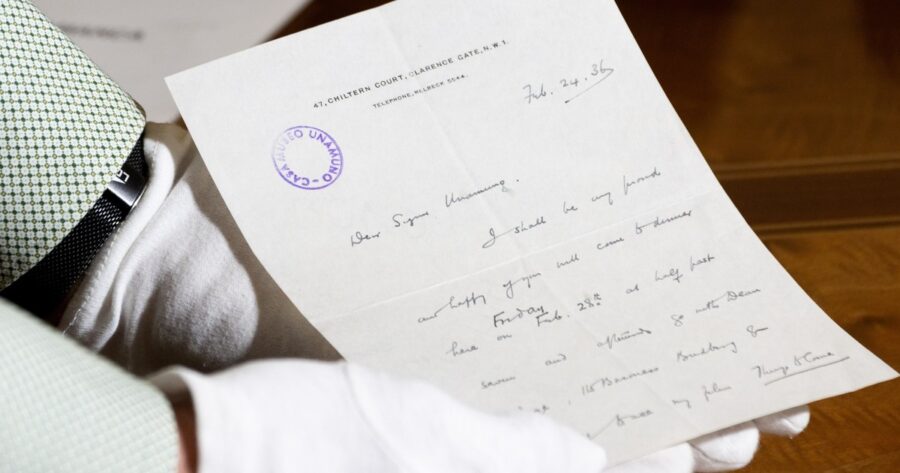 47, CHILTERN COURT, CLARENCE GATE, N.W.1.
TELEPHONE, WELBECK 5544.
Feb. 24. 36
CASA MUSEO UNAMUNO
Dear Signor Unamuno.
I shall be very proud
and happy if you will come to dinner
Friday
here on Feb. 28th at half past
seven and afterwards go with
, the Baroness Budberg &
my film Things to Come